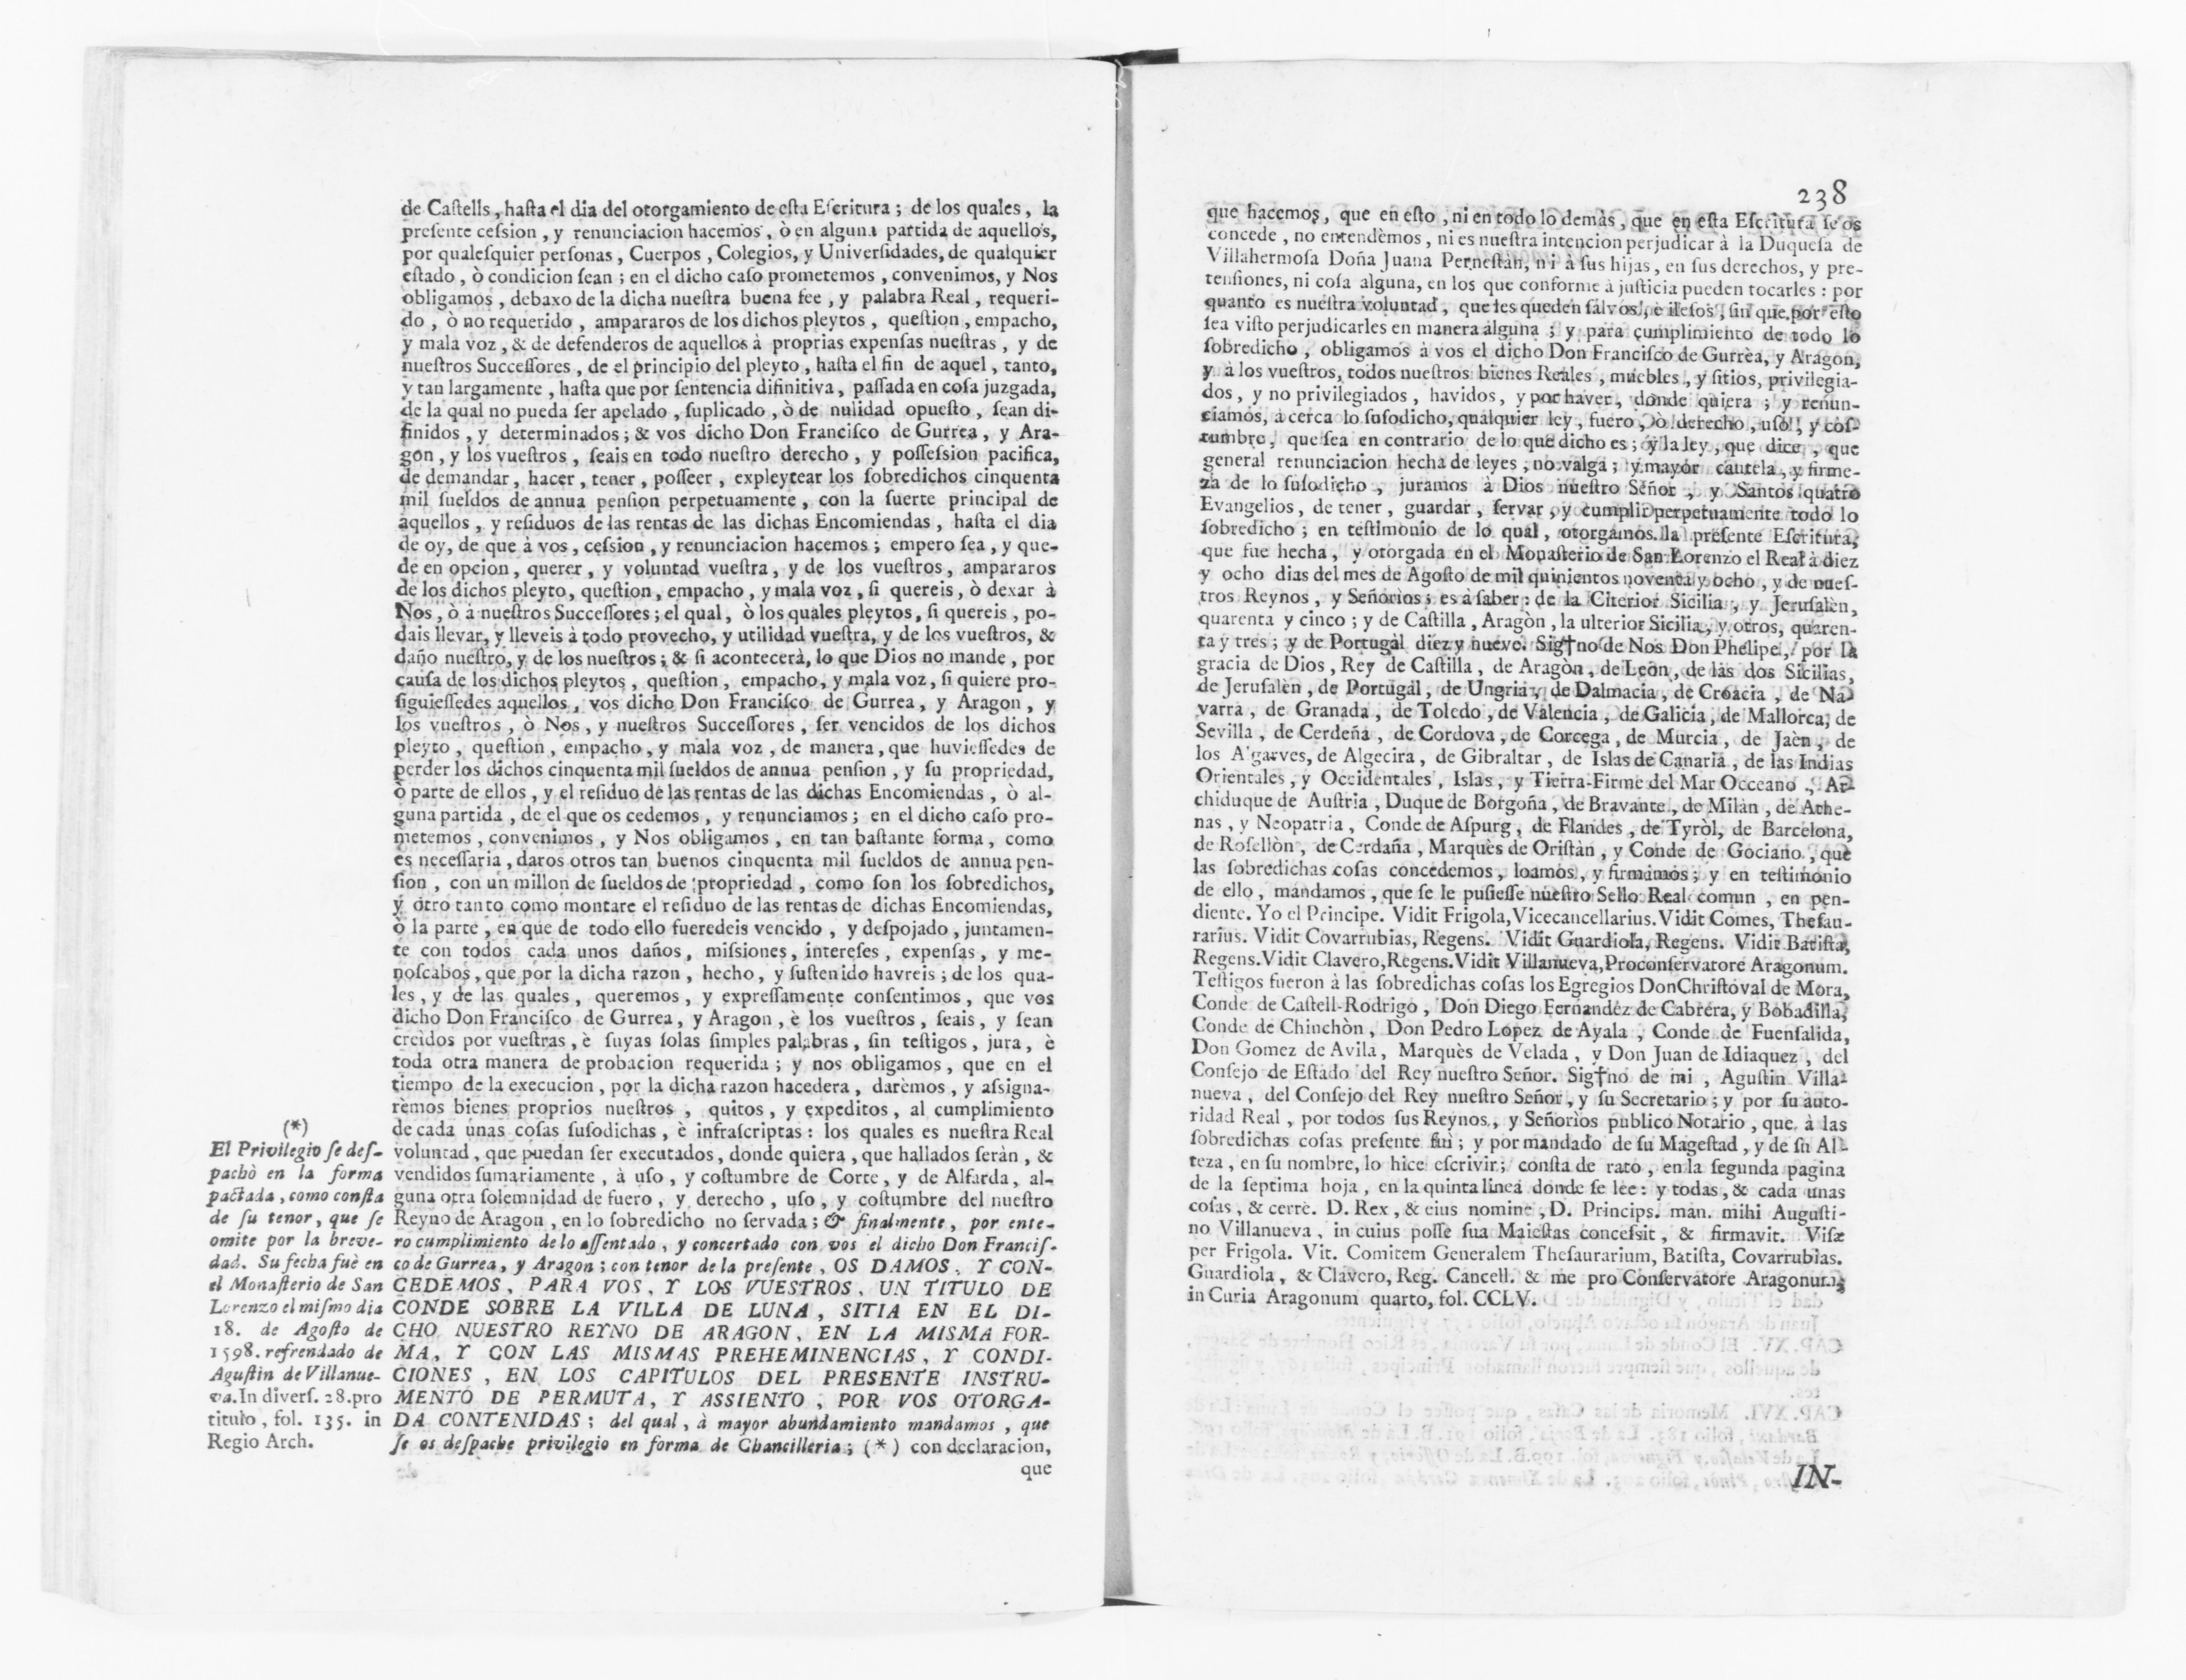 de Caſtells, haſta el dia del otorgamiento de eſta Eſcritura; de los quales, la
preſente ceſsion, y renunciacion hacemos, ò en alguna partida de aquellos,
por qualeſquier perſonas, Cuerpos, Colegios, y Univerſidades, de qualquier
eſtado, ò condicion ſean; en el dicho caſo prometemos, convenimos, y Nos
obligamos, debaxo de la dicha nueſtra buena fee, y palabra Real, requeri-
do, ò no requerido, ampararos de los dichos pleytos, queſtion, empacho,
y mala voz, & de defenderos de aquellos à proprias expenſas nueſtras, y de
nueſtros Succeſſores, de el principio del pleyto, haſta el fin de aquel, tanto,
y tan largamente, haſta que por ſentencia difinitiva, paſſada en coſa juzgada,
de la qual no pueda ſer apelado, ſuplicado, ò de nulidad opueſto, ſean di-
finidos, y determinados; & vos dicho Don Franciſco de Gurrea, y Ara-
gon, y los vueſtros, ſeais en todo nueſtro derecho, y poſſeſsion pacifica,
de demandar, hacer, tener, poſſeer, expleytear los ſobredichos cinquenta
mil ſueldos de annua penſion perpetuamente, con la ſuerte principal de
aquellos, y reſiduos de las rentas de las dichas Encomiendas, haſta el dia
de oy, de que à vos, ceſsion, y renunciacion hacemos; empero ſea, y que-
de en opcion, querer, y voluntad vueſtra, y de los vueſtros, ampararos
de los dichos pleyto, queſtion, empacho, y mala voz, ſi quereis, ò dexar à
Nos, ò à nueſtros Succeſſores; el qual, ò los quales pleytos, ſi quereis, po-
dais llevar, y lleveis à todo provecho, y utilidad vueſtra, y de los vueſtros, &
daño nueſtro, y de los nueſtros; & ſi acontecerà, lo que Dios no mande, por
cauſa de los dichos pleytos, queſtion, empacho, y mala voz, ſi quiere pro-
ſiguieſſedes aquellos, vos dicho Don Franciſco de Gurrea, y Aragon, y
los vueſtros, ò Nos, y nueſtros Succeſſores, ſer vencidos de los dichos
pleyto, queſtion, empacho, y mala voz, de manera, que huvieſſedes de
perder los dichos cinquenta mil ſueldos de annua penſion, y ſu propriedad,
ò parte de ellos, y el reſiduo de las rentas de las dichas Encomiendas, ò al-
guna partida, de el que os cedemos, y renunciamos; en el dicho caſo pro-
metemos, convenimos, y Nos obligamos, en tan baſtante forma, como
es neceſſaria, daros otros tan buenos cinquenta mil ſueldos de annua pen-
ſion, con un millon de ſueldos de propriedad, como ſon los ſobredichos,
y otro tanto como montare el reſiduo de las rentas de dichas Encomiendas,
ò la parte, en que de todo ello fueredeis vencido, y deſpojado, juntamen-
te con todos cada unos daños, miſsiones, intereſes, expenſas, y me-
noſcabos, que por la dicha razon, hecho, y ſuſtenido havreis; de los qua-
les, y de las quales, queremos, y expreſſamente conſentimos, que vos
dicho Don Franciſco de Gurrea, y Aragon, è los vueſtros, ſeais, y ſean
creìdos por vueſtras, è ſuyas ſolas ſimples palabras, ſin teſtigos, jura, è
toda otra manera de probacion requerida; y nos obligamos, que en el
tiempo de la execucion, por la dicha razon hacedera, darèmos, y aſsigna-
rèmos bienes proprios nueſtros, quitos, y expeditos, al cumplimiento
de cada unas coſas ſuſodichas, è infraſcriptas: los quales es nueſtra Real
voluntad, que puedan ſer executados, donde quiera, que hallados ſeràn, &
vendidos ſumariamente, à uſo, y coſtumbre de Corte, y de Alfarda, al-
guna otra ſolemnidad de fuero, y derecho, uſo, y coſtumbre del nueſtro
Reyno de Aragon, en lo ſobredicho no ſervada; & finalmente, por ente-
ro cumplimiento de lo aſſentado, y concertado con vos el dicho Don Franciſ-
co de Gurrea, y Aragon; con tenor de la preſente, OS DAMOS, Y CON-
CEDEMOS, PARA VOS, Y LOS VUESTROS, UN TITULO DE
CONDE SOBRE LA VILLA DE LUNA, SITIA EN EL DI-
CHO NUESTRO REYNO DE ARAGON, EN LA MISMA FOR-
MA, Y CON LAS MISMAS PREHEMINENCIAS, Y CONDI-
CIONES, EN LOS CAPITULOS DEL PRESENTE INSTRU-
MENTO DE PERMUTA, Y ASSIENTO, POR VOS OTORGA-
DA CONTENIDAS; del qual, à mayor abundamiento mandamos, que
ſe os deſpache privilegio en forma de Chancilleria; (*) con declaracion,
que
(*)
El Privilegio ſe deſ-
pachò en la forma
pactada, como conſta
de ſu tenor, que ſe
omite por la breve-
dad. Su fecha fuè en
el Monaſterio de San
Lorenzo el miſmo dia
18. de Agoſto de
1598. refrendado de
Aguſtin de Villanue-
va. In diverſ. 28. pro
titulo, fol. 135. in
Regio Arch.
238
que hacemos, que en eſto, ni en todo lo demàs, que en eſta Eſcritura ſe os
concede, no entendèmos, ni es nueſtra intencion perjudicar à la Duqueſa de
Villahermoſa Doña Juana Perneſtan, ni à ſus hijas, en ſus derechos, y pre-
tenſiones, ni coſa alguna, en los que conforme à juſticia pueden tocarles: por
quanto es nueſtra voluntad, que les queden ſalvos, è ileſos, ſin que por eſto
ſea viſto perjudicarles en manera alguna; y para cumplimiento de todo lo
ſobredicho, obligamos à vos el dicho Don Franciſco de Gurrèa, y Aragon,
y à los vueſtros, todos nueſtros bienes Reales, muebles, y ſitios, privilegia-
dos, y no privilegiados, havidos, y por haver, donde quiera; y renun-
ciamos, à cerca lo ſuſodicho, qualquier ley, fuero, ò derecho, uſo, y coſ-
tumbre, que ſea en contrario de lo que dicho es; y la ley, que dice, que
general renunciacion hecha de leyes, no valga; y mayor cautela, y firme-
za de lo ſuſodicho, juramos à Dios nueſtro Señor, y Santos quatro
Evangelios, de tener, guardar, ſervar, y cumplir perpetuamente todo lo
ſobredicho; en teſtimonio de lo qual, otorgamos la preſente Eſcritura,
que fue hecha, y otorgada en el Monaſterio de San Lorenzo el Real à diez
y ocho dias del mes de Agoſto de mil quinientos noventa y ocho, y de nueſ-
tros Reynos, y Señorios; es à ſaber: de la Citerior Sicilia, y Jeruſalèn,
quarenta y cinco; y de Caſtilla, Aragòn, la ulterior Sicilia, y otros, quaren-
ta y tres; y de Portugàl diez y nueve. Sig†no de Nos Don Phelipe, por la
gracia de Dios, Rey de Caſtilla, de Aragòn, de Leòn, de las dos Sicilias,
de Jeruſalèn, de Portugàl, de Ungria, de Dalmacia, de Croacia, de Na-
varra, de Granada, de Toledo, de Valencia, de Galicia, de Mallorca, de
Sevilla, de Cerdeña, de Cordova, de Corcega, de Murcia, de Jaèn, de
los Algarves, de Algecira, de Gibraltar, de Islas de Canaria, de las Indias
Orientales, y Occidentales, Islas, y Tierra-Firme del Mar Occeano, Ar-
chiduque de Auſtria, Duque de Borgoña, de Bravante, de Milàn, de Athe-
nas, y Neopatria, Conde de Aſpurg, de Flandes, de Tyròl, de Barcelona,
de Roſellòn, de Cerdaña, Marquès de Oriſtàn, y Conde de Gociano, que
las ſobredichas coſas concedemos, loamos, y firmamos; y en teſtimonio
de ello, mandamos, que ſe le puſieſſe nueſtro Sello Real comun, en pen-
diente. Yo el Principe. Vidit Frigola, Vicecancellarius. Vidit Comes, Theſau-
rarius. Vidit Covarrubias, Regens. Vidit Guardiola, Regens. Vidit Batiſta,
Regens. Vidit Clavero, Regens. Vidit Villanueva, Proconſervatore Aragonum.
Teſtigos fueron à las ſobredichas coſas los Egregios Don Chriſtoval de Mora,
Conde de Caſtell-Rodrigo, Don Diego Fernandez de Cabrera, y Bobadilla,
Conde de Chinchòn, Don Pedro Lopez de Ayala, Conde de Fuenſalida,
Don Gomez de Avila, Marquès de Velada, y Don Juan de Idiaquez, del
Conſejo de Eſtado del Rey nueſtro Señor. Sig†no de mi, Aguſtin Villa-
nueva, del Conſejo del Rey nueſtro Señor, y ſu Secretario; y por ſu auto-
ridad Real, por todos ſus Reynos, y Señorìos publico Notario, que à las
ſobredichas coſas preſente fuì; y por mandado de ſu Mageſtad, y de ſu Al-
teza, en ſu nombre, lo hice eſcrivir; conſta de rato, en la ſegunda pagina
de la ſeptima hoja, en la quinta linea donde ſe lee: y todas, & cada unas
coſas, & cerrè. D. Rex, & eius nomine, D. Princips. man. mihi Auguſti-
no Villanueva, in cuius poſſe ſua Maieſtas conceſsit, & firmavit. Viſæ
per Frigola. Vit. Comitem Generalem Theſaurarium, Batiſta, Covarrubias.
Guardiola, & Clavero, Reg. Cancell. & me pro Conſervatore Aragonum;
in Curia Aragonum quarto, fol. CCLV.
IN-